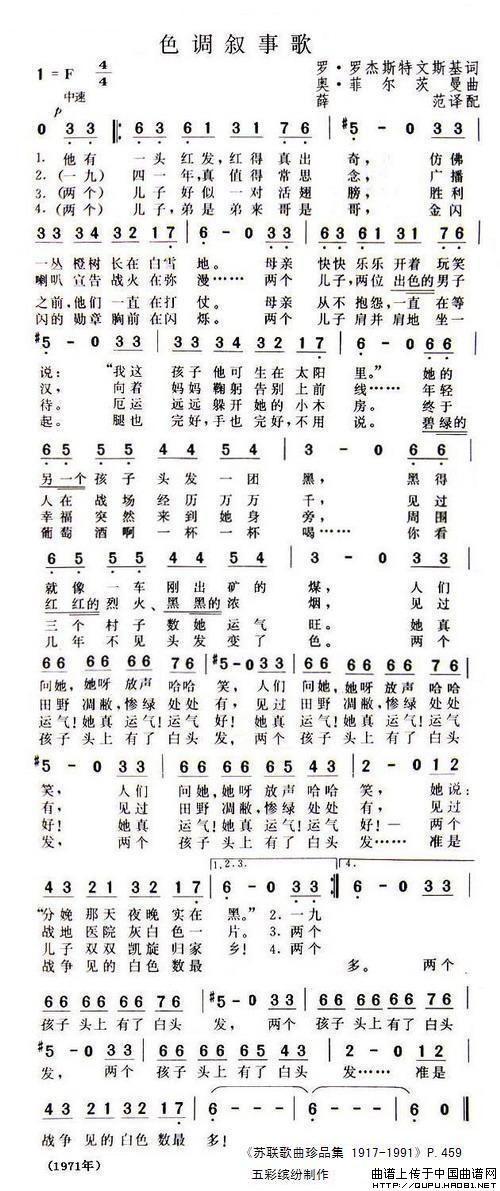 色调叙事歌
1=F 4/4
中速
p
罗·罗杰斯特文斯基词
奥·菲尔茨曼曲
薛范译配
0 3 3 | 6 3 6 1 3 1 7 6 | #5 - 0 3 3 |
1. 他有 一头 红发,红得 真出 奇, 仿佛
2. (一九) 四一 年,真值得 常思 念, 广播
3. (两个) 儿子 好似 一对 活翅 膀, 胜利
4. (两个) 儿子,弟是 弟来 哥是 哥, 金闪
3 3 3 4 4 3 2 3 2 1 7 | 6 - 0 3 3 | 6 3 6 1 3 1 7 6 |
一丛 橙树 长在 白雪 地。 母亲 快快 乐乐 开着 玩笑
喇叭 宣告 战火 在弥 漫…… 两个 儿子,两位 出色的 男子
之前,他们 一直 在打 仗。 母亲 从不 抱怨,一直 在等
闪的 勋章 胸前 在闪 烁。 两个 儿子 肩并 肩地 坐一
#5 - 0 3 3 | 3 4 4 3 2 3 2 1 7 | 6 - 0 6 6 |
说: “我这 孩子 他可 生在 太阳 里。” 她的
汉, 向着 妈妈 鞠躬 告别 上前 线…… 年轻
待。 厄运 远远 躲开 她的 小木 房。 终于
起。 腿也 完好,手也 完好,不用 说。 碧绿的
6 5 5 5 5 4 5 4 | 3 - 0 6 6 |
另一个 孩子 头发 一团 黑, 黑得
人在 战场 经历 万万 千, 见过
幸福 突然 来到 她身 旁, 周围
葡萄 酒啊 一杯 一杯 喝…… 你看
6 5 5 5 5 4 5 4 | 3 - 0 3 3 |
就像 一车 刚出 矿的 煤, 人们
红红的 烈火、黑黑的 浓 烟, 见过
三个 村子 数她 运气 旺。 她真
几年 不见 头发 变了 色。 两个
6 6 6 6 6 6 7 6 | #5 - 0 3 3 | 6 6 6 6 6 6 7 6 |
问她,她呀 放声 哈哈 笑,人们 问她,她呀 放声 哈哈
田野 凋敝,惨绿 处处 有,见过 田野 凋敝,惨绿 处处
运气!她真 运气!运气 好!她真 运气!她真 运气!运气
孩子 头上 有了 白头 发,两个 孩子 头上 有了 白头
#5 - 0 3 3 | 6 6 6 6 6 5 4 3 | 2 - 0 1 2 |
笑, 人们 问她,她呀 放声 哈哈 笑, 她说:
有, 见过 田野 凋敝,惨绿 处处 有, 见过
好! 她真 运气!她真 运气!运气 好!— 两个
发, 两个 孩子 头上 有了 白头 发…… 准是
1.2.3. 4.
4 3 2 1 3 2 1 7 | 6 - 0 3 3 :| 6 - 0 3 3 |
“分娩 那天 夜晚 实在 黑。” 2. 一九
战地 医院 灰白 色一 片。 3. 两个
儿子 双双 凯旋 归家 乡! 4. 两个
战争 见的 白色 数最 多。 两个
6 6 6 6 6 6 7 6 | #5 - 0 3 3 | 6 6 6 6 6 6 7 6 |
孩子 头上 有了 白头 发, 两个 孩子 头上 有了 白头
#5 - 0 3 3 | 6 6 6 6 6 5 4 3 | 2 - 0 1 2 |
发, 两个 孩子 头上 有了 白头 发…… 准是
4 3 2 1 3 2 1 7 | 6 - - - | 6 - - - | 6 0 0 0 ‖
战争 见的 白色 数最 多!
(1971年)
《苏联歌曲珍品集 1917-1991》P.459
五彩缤纷制作
曲谱上传于中国曲谱网
HTTP://QUPU.HAO81.NET